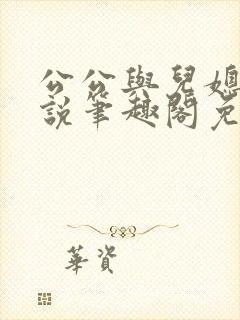 公公與兒媳
說筆趣閣免
華資